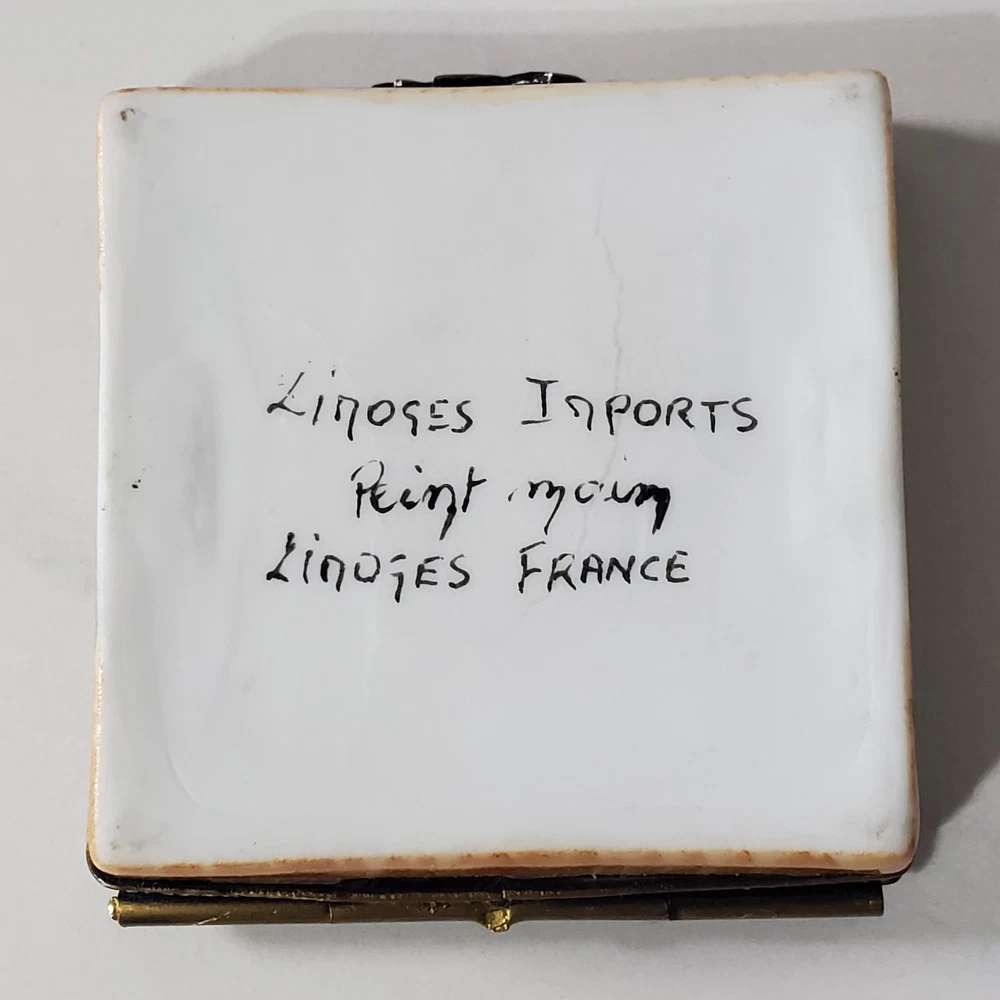 LiMOGES IMPORTS
Peint main
LiMOGES FRANCE